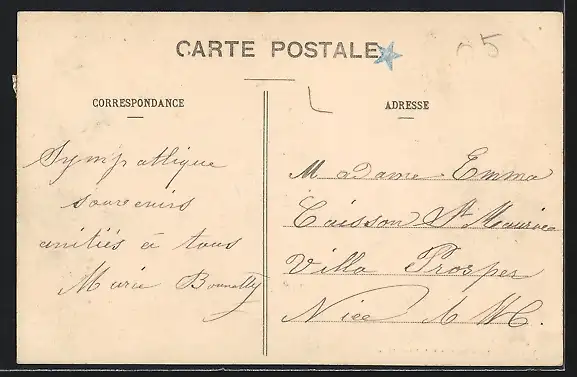 CARTE POSTALE
05
CORRESPONDANCE
ADRESSE
Sympathique
souvenirs
amitiés à tous
Marie
Madame Emma
Caisson St Maurice
Villa Prosper
Nice